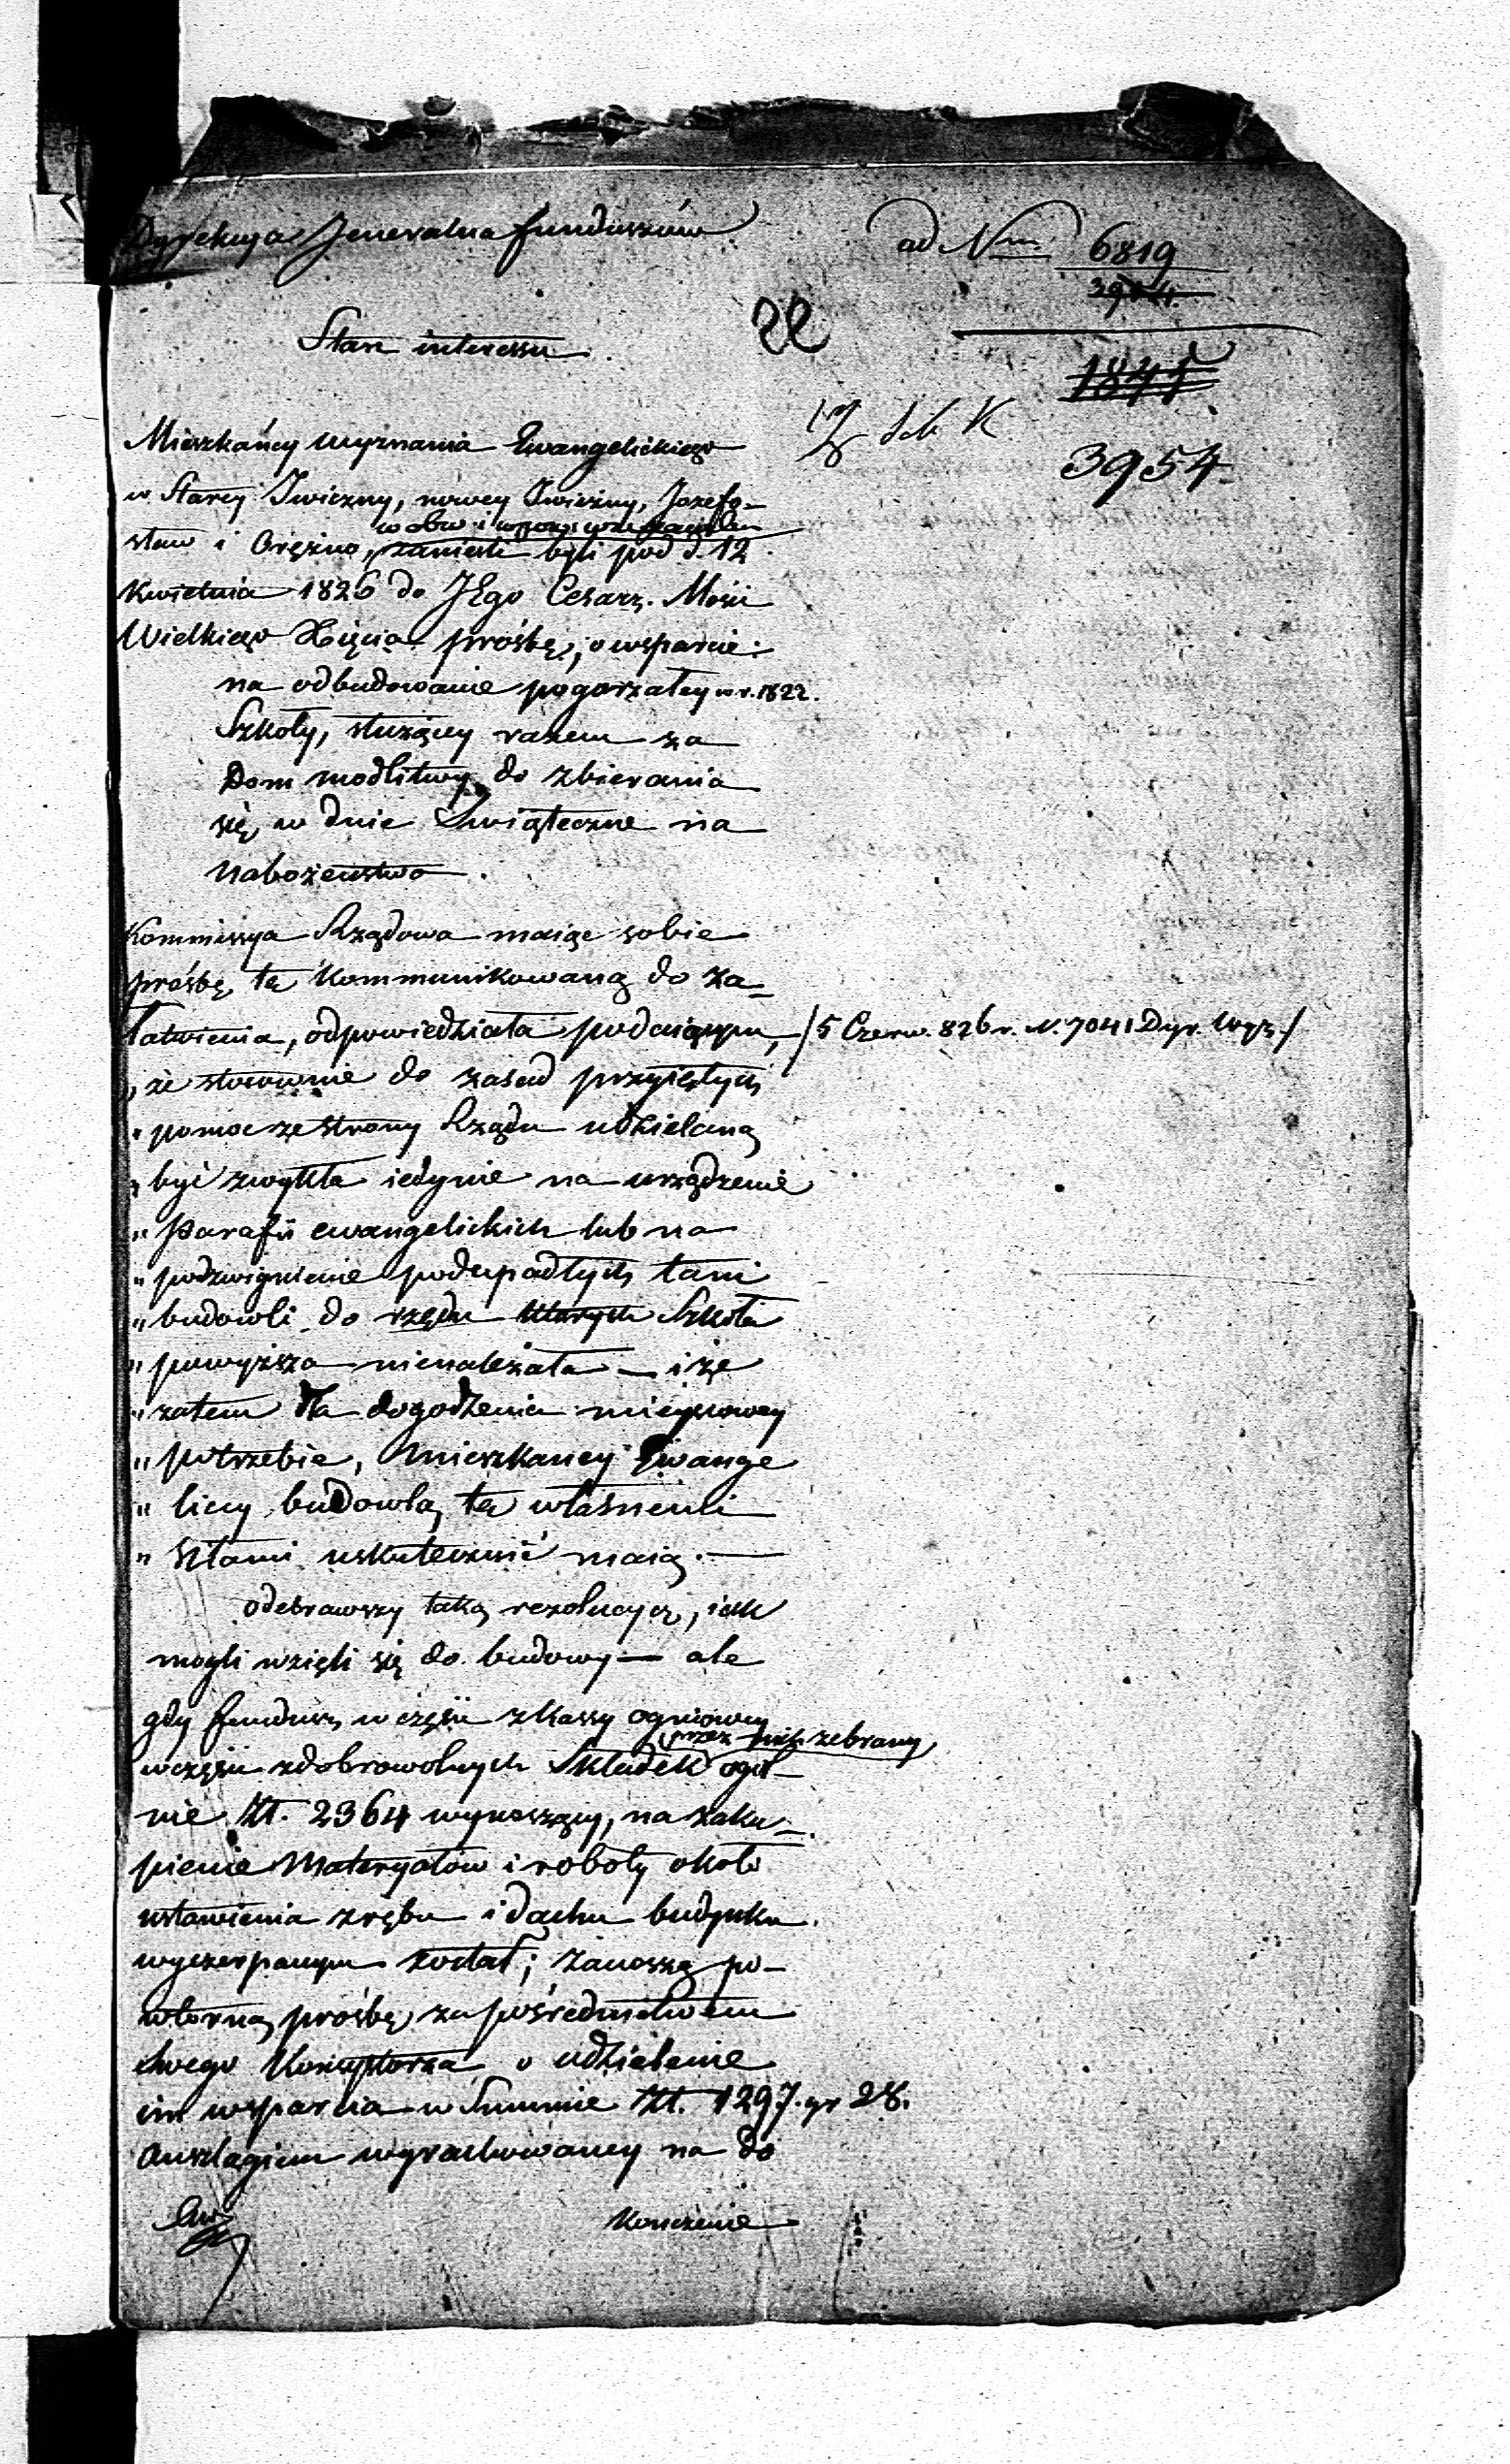 Dyrekcya Jeneralna funduszów
ad Nrm 6819
22
Stan interessu.
1841
3954
Mieszkańcy wyznania Ewangelickiego
w Starey Iwiczny, nowey Iwiczny, Jozefo-
sław i Orężno, zanieśli byli pod d. 12
Kwietnia 1826 do JEgo Cesarz. Mości
Wielkiego Xięcia prośbę, o wsparcie:
na odbudowanie pogorzałey w r. 1822.
Szkoły, służącey razem za
Dom modlitwy do zbierania
się w dnie Swiąteczne na
nabożeństwo.
Kommissya Rządowa maiąc sobie
prośbę tę kommunikowaną do za-
łatwienia, odpowiedziała podaiącym, /5 Czerw. 826 r. N. 7041 Dyr. Wyz./
„ że stosownie do zasad przyiętych
„ pomoc ze strony Rządu udzielaną
„ być zwykła iedynie na urządzenie
„ Parafii ewangelickich lub na
„ podzwignienie podupadłych tami
„ budowli do rzędu których Szkoła
„ powyższa nienależała — i że
„ zatem dla dogodzenia mieyscowey
„ potrzebie, Mieszkancy Ewange
„ licy budowlą tę własnemi
„ siłami uskutecznić maią. —
odebrawszy taką rezolucyą, iak
mogli wzięli się do budowy — ale
gdy fundusz w części z kassy ogniowey
przez nich zebrany,
w części z dobrowolnych Składek ogól-
nie Zł. 2364 wynoszący, na zaku-
pienie Materyałów i roboty około
ustawienia zrębu i dachu budynku
wyczerpanym został; zanoszą po-
wtórną prośbę za pośrednictwem
swego Konsyстorza o udzielenie
im wsparcia w Summie Zł. 1297. gr 28.
Anszlagiem wyrachowaney na do
konczenie